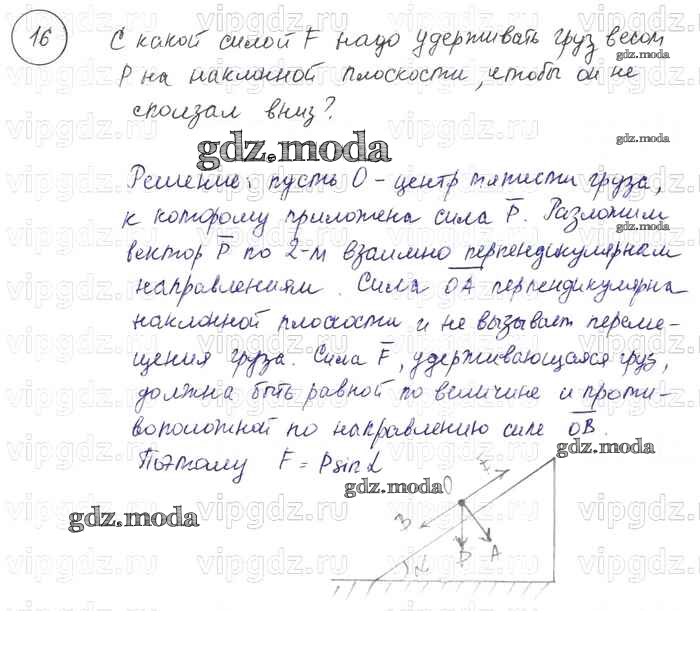 16
С какой силой F надо удерживать груз весом
P на наклонной плоскости, чтобы он не
сползал вниз?
gdz.moda
Решение: пусть O - центр тяжести груза,
к которому приложена сила P. Разложим
вектор P по 2-м взаимно перпендикулярным
направлениям. Сила OA перпендикулярна
наклонной плоскости и не вызывает переме-
щения груза. Сила F, удерживающаяся груз,
должна быть равной по величине и проти-
воположной по направлению силе OB.
Поэтому F = P sin α
gdz.moda
O
F
B
B
A
α
gdz.moda
vipgdz.ru